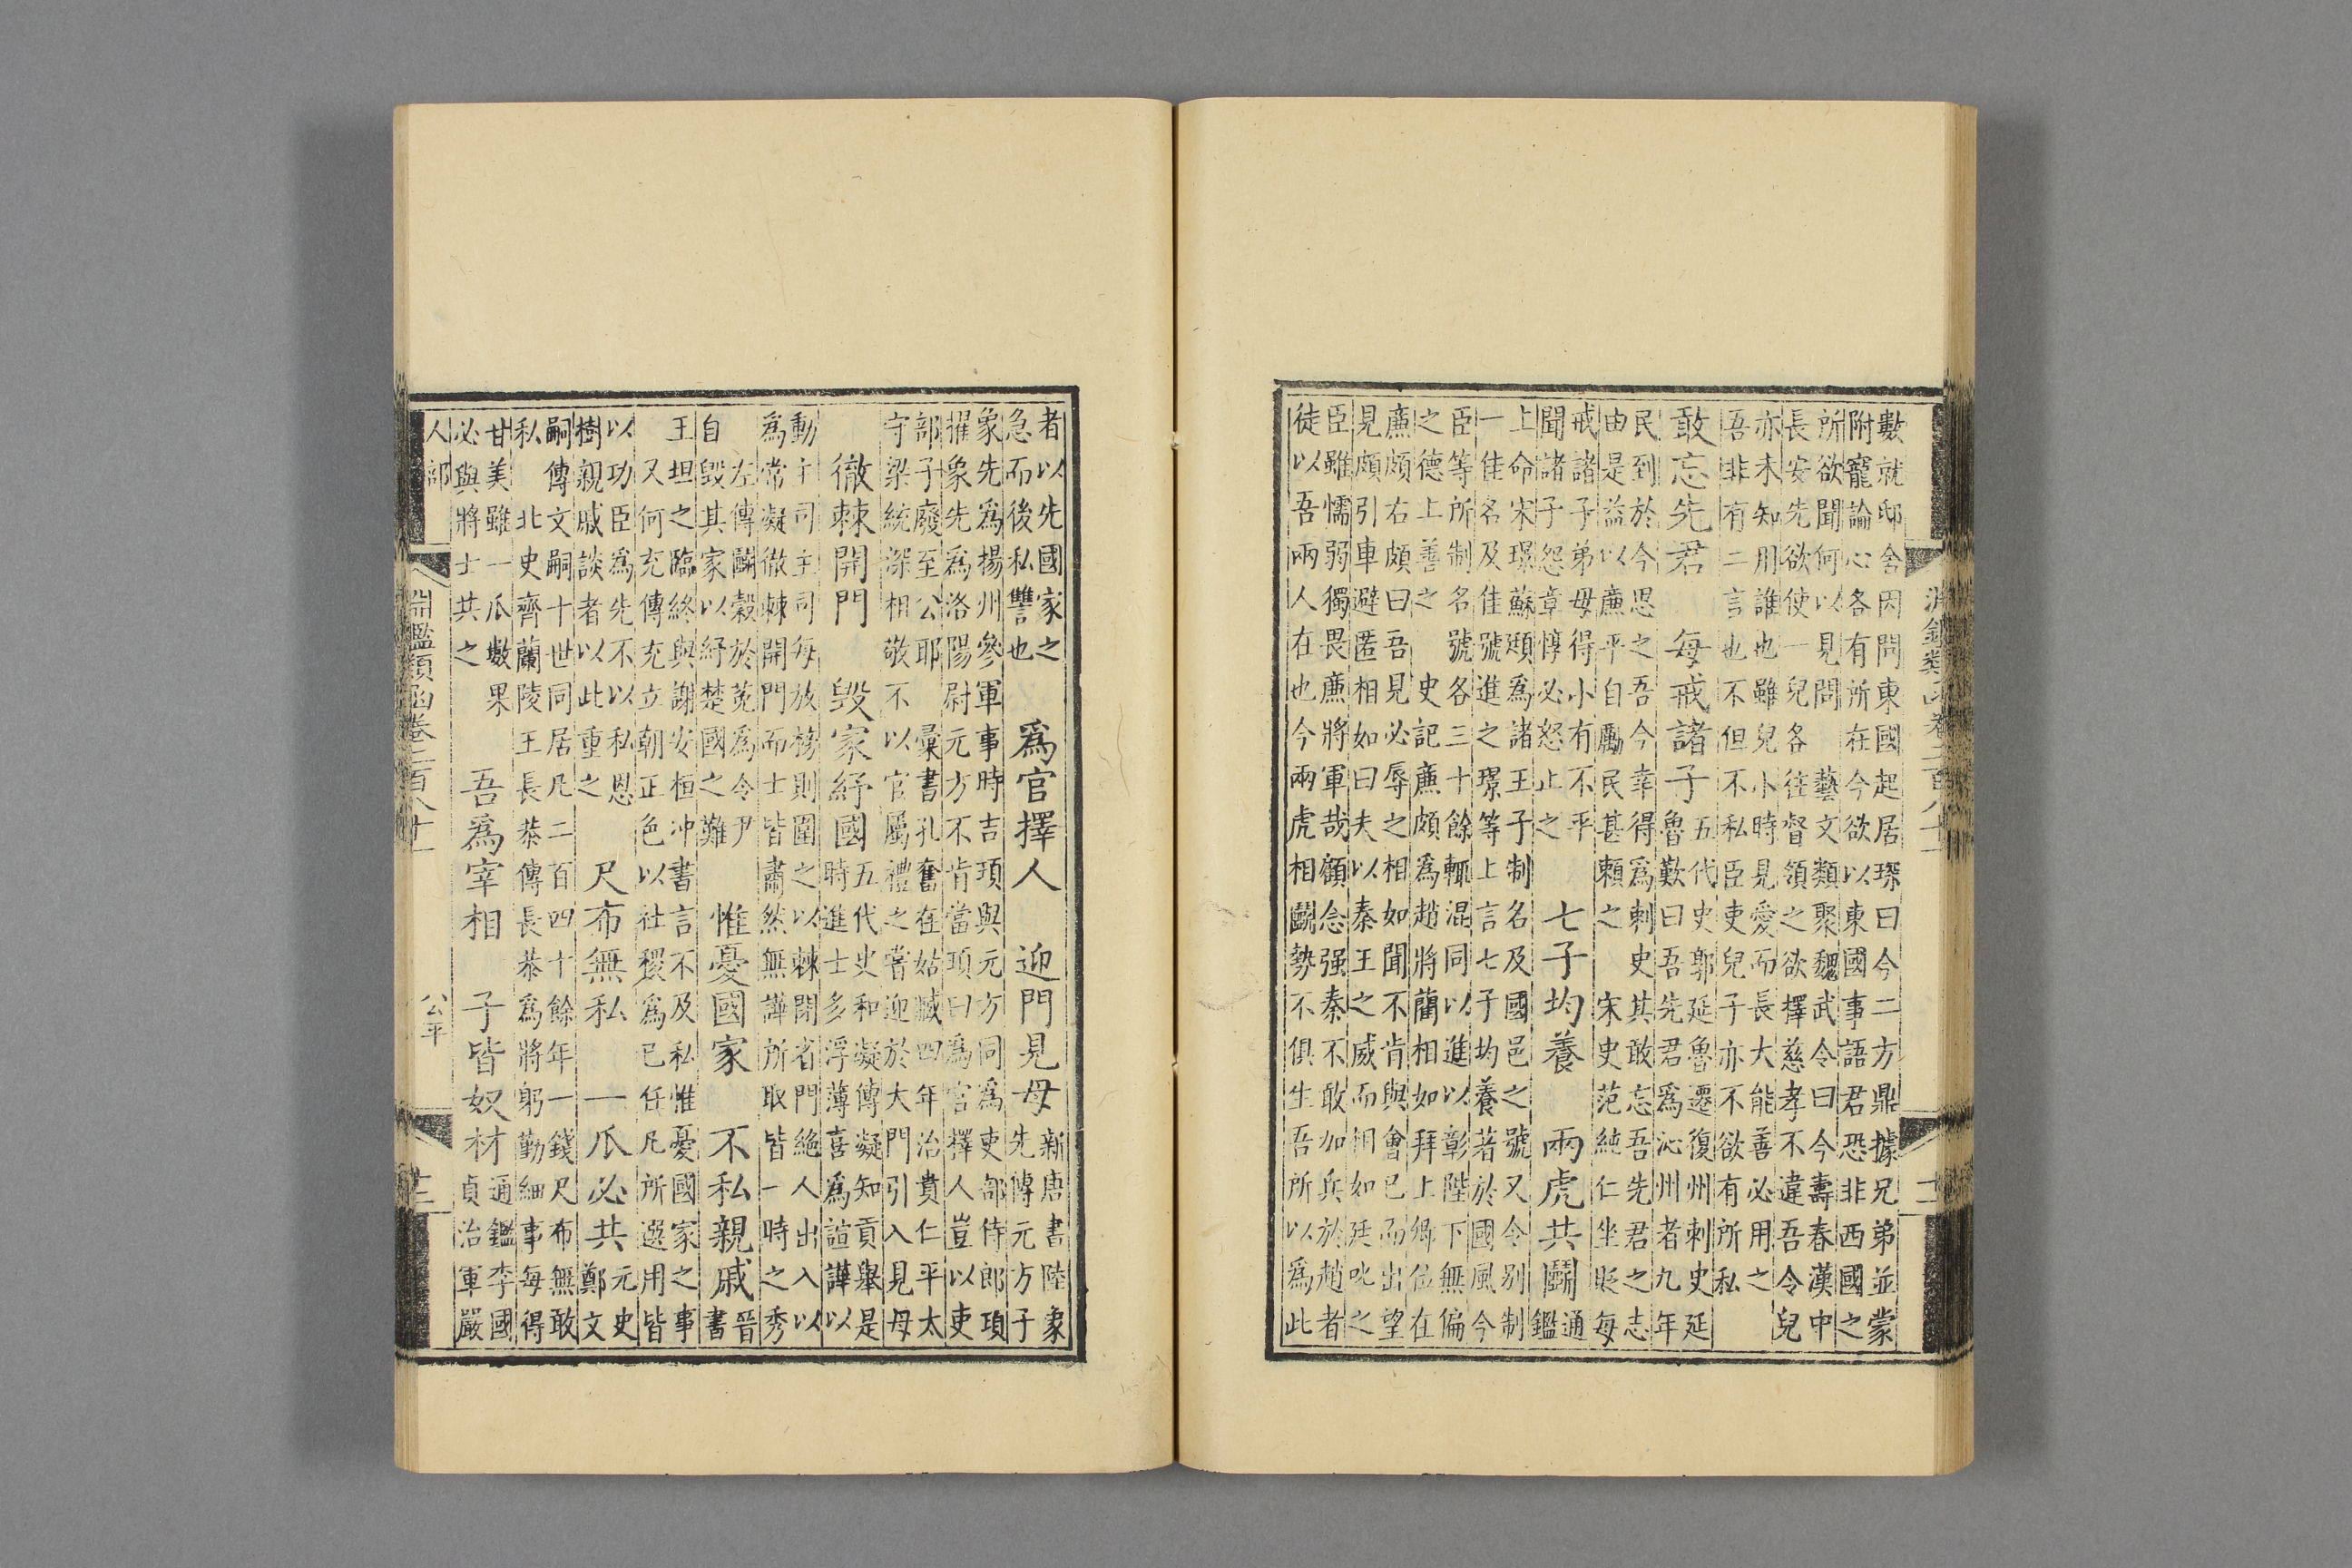 數就邸舍因問東國起居琛曰今二方鼎據兄弟並蒙
附寵論心各有所在今欲以東國事語君恐非西國之
所欲聞何以見問　藝文類聚魏武令曰今壽春漢中
長安先欲使一兒各往督領之欲擇慈孝不違吾令兒
亦未知用誰也雖兒小時見愛而長大能善必用之
吾非有二言也不但不私臣吏兒子亦不欲有所私
敢忘先君　每戒諸子
五代史郭延魯遷復州刺史延
魯歎曰吾先君爲沁州者九年
民到於今思之吾今幸得爲刺史其敢忘吾先君之志
由是益以廉平自勵民甚賴之　宋史范純仁坐貶每
戒諸子弟母得小有不平
聞諸子怨章惇必怒止之
七子均養　兩虎共鬭
通
鑑
上命宋璟蘇頲爲諸王子制名及國邑之號又令别制
一佳名及佳號進之璟等上言七子均養著於國風今
臣等所制名號各三十餘輒混同以進以彰陛下無偏
之德上善之　史記廉頗爲趙將藺相如拜上卿位在
廉頗右頗曰吾見必辱之相如聞不肯與會已而出望
見頗引車避匿相如曰夫以秦王之威而相如廷叱之
臣雖懦弱獨畏廉將軍哉顧念强秦不敢加兵於趙者
徒以吾兩人在也今兩虎相鬭勢不俱生吾所以爲此
者以先國家之
急而後私讐也
爲官擇人　迎門見母
新唐書陸象
先傳元方子
象先爲揚州參軍事時吉頊與元方同爲吏部侍郎頊
擢象先爲洛陽尉元方不肯當頊曰爲官擇人豈以吏
部子廢至公耶　彙書孔奮在姑臧四年治貴仁平太
守梁統深相敬不以官屬禮之嘗迎於大門引入見母
徹棘開門　毀家紓國
五代史和凝傳凝知貢舉是
時進士多浮薄喜爲諠譁以
動主司主司每放榜則圍之以棘閉省門絶人出入以
爲常凝徹棘開門而士皆肅然無譁所取皆一時之秀
左傳鬭穀於菟爲令尹
自毀其家以紓楚國之難
惟憂國家　不私親戚
晉
書
王坦之臨終與謝安桓冲書言不及私惟憂國家之事
又何充傳充立朝正色以社稷爲已任凡所選用皆
以功臣爲先不以私恩
樹親戚談者以此重之
尺布無私　一瓜必共
元史
鄭文
嗣傳文嗣十世同居凡二百四十餘年一錢尺布無敢
私　北史齊蘭陵王長恭傳長恭爲將躬勤細事每得
甘美雖一瓜數果
必與將士共之
吾爲宰相　子皆奴材
通鑑李國
貞治軍嚴
人部　淵鑑類函卷二百八十一　公平　十三